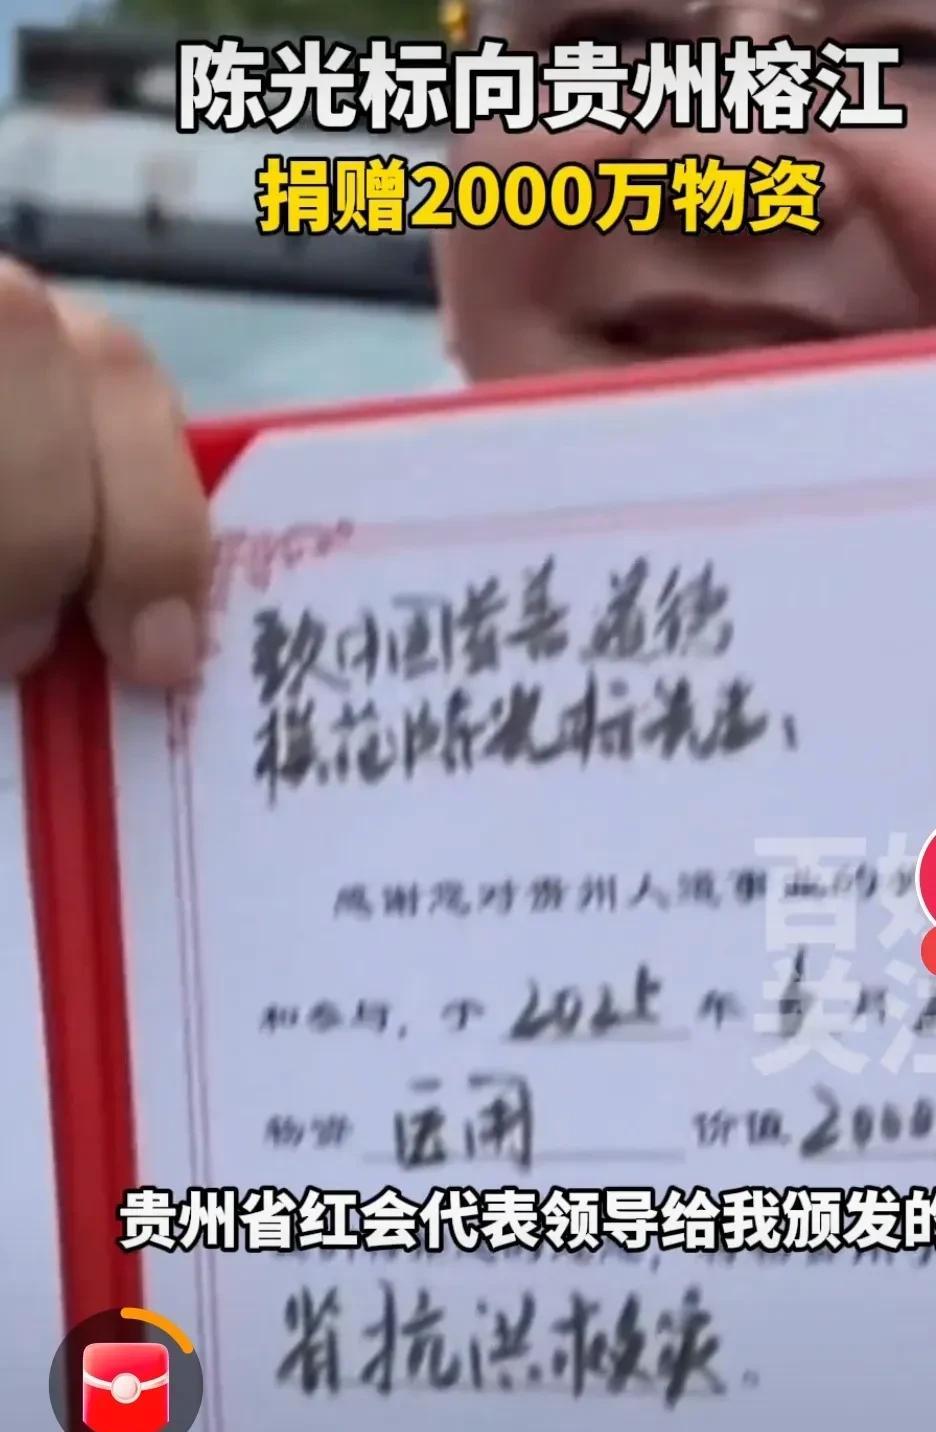 陈光标向贵州榕江
捐赠2000万物资
致中国慈善道德
模范陈光标先生：
感谢您对贵州人道事业的
和参与，于2025年6月
物资 医用 价值2000
贵州省红会代表领导给我颁发的
省抗洪救灾。
百姓
关注